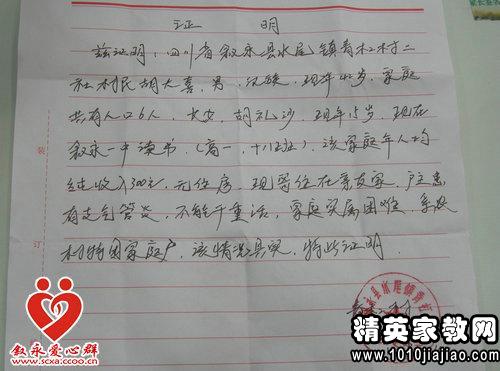 证 明
兹证明,四川省叙永县水尾镇青杠村二
社村民胡大喜,男,汉族,现年42岁,家庭
共有人口6人,长女,胡礼沙,现年15岁,现在
叙永一中读书(高一,十八班),该家庭年人均
纯收入300元,无住房,现寄住在亲友家,户主患
有支气管炎,不能干重活,家庭实属困难,系农
村特困家庭户,该情况具实,特此证明.
装
订
叙永县水尾镇青
叙永爱心群
www.scxa.ccoo.cn
精英家教网
www.1010jiajiao.com